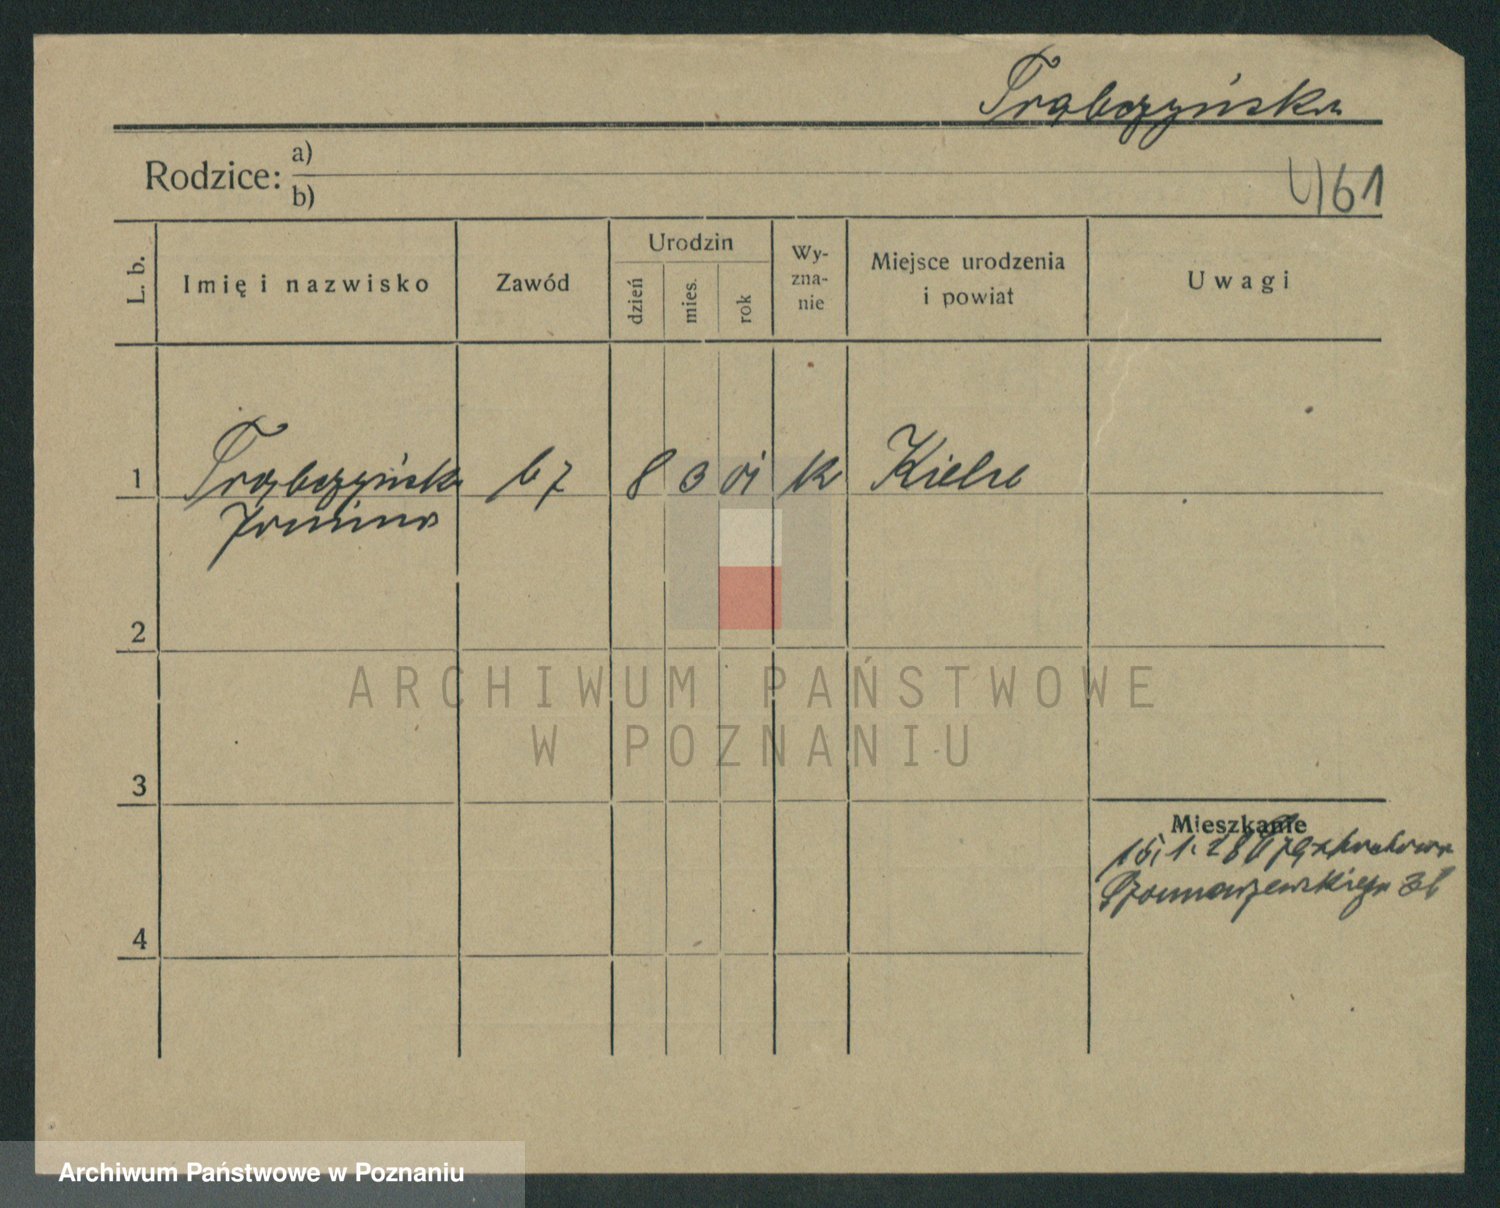 Trąbczyńska
Rodzice: a)
b)
4161
L. b.
Imię i nazwisko
Zawód
Urodzin
dzień
mies.
rok
Wy-
zna-
nie
Miejsce urodzenia
i powiat
Uwagi
1
Trąbczyńska
Janina
bz
8 3 01
k
Kielce
2
3
4
Mieszkanie
16.1.28
Szamarzewskiego
ARCHIWUM PAŃSTWOWE
W POZNANIU
Archiwum Państwowe w Poznaniu